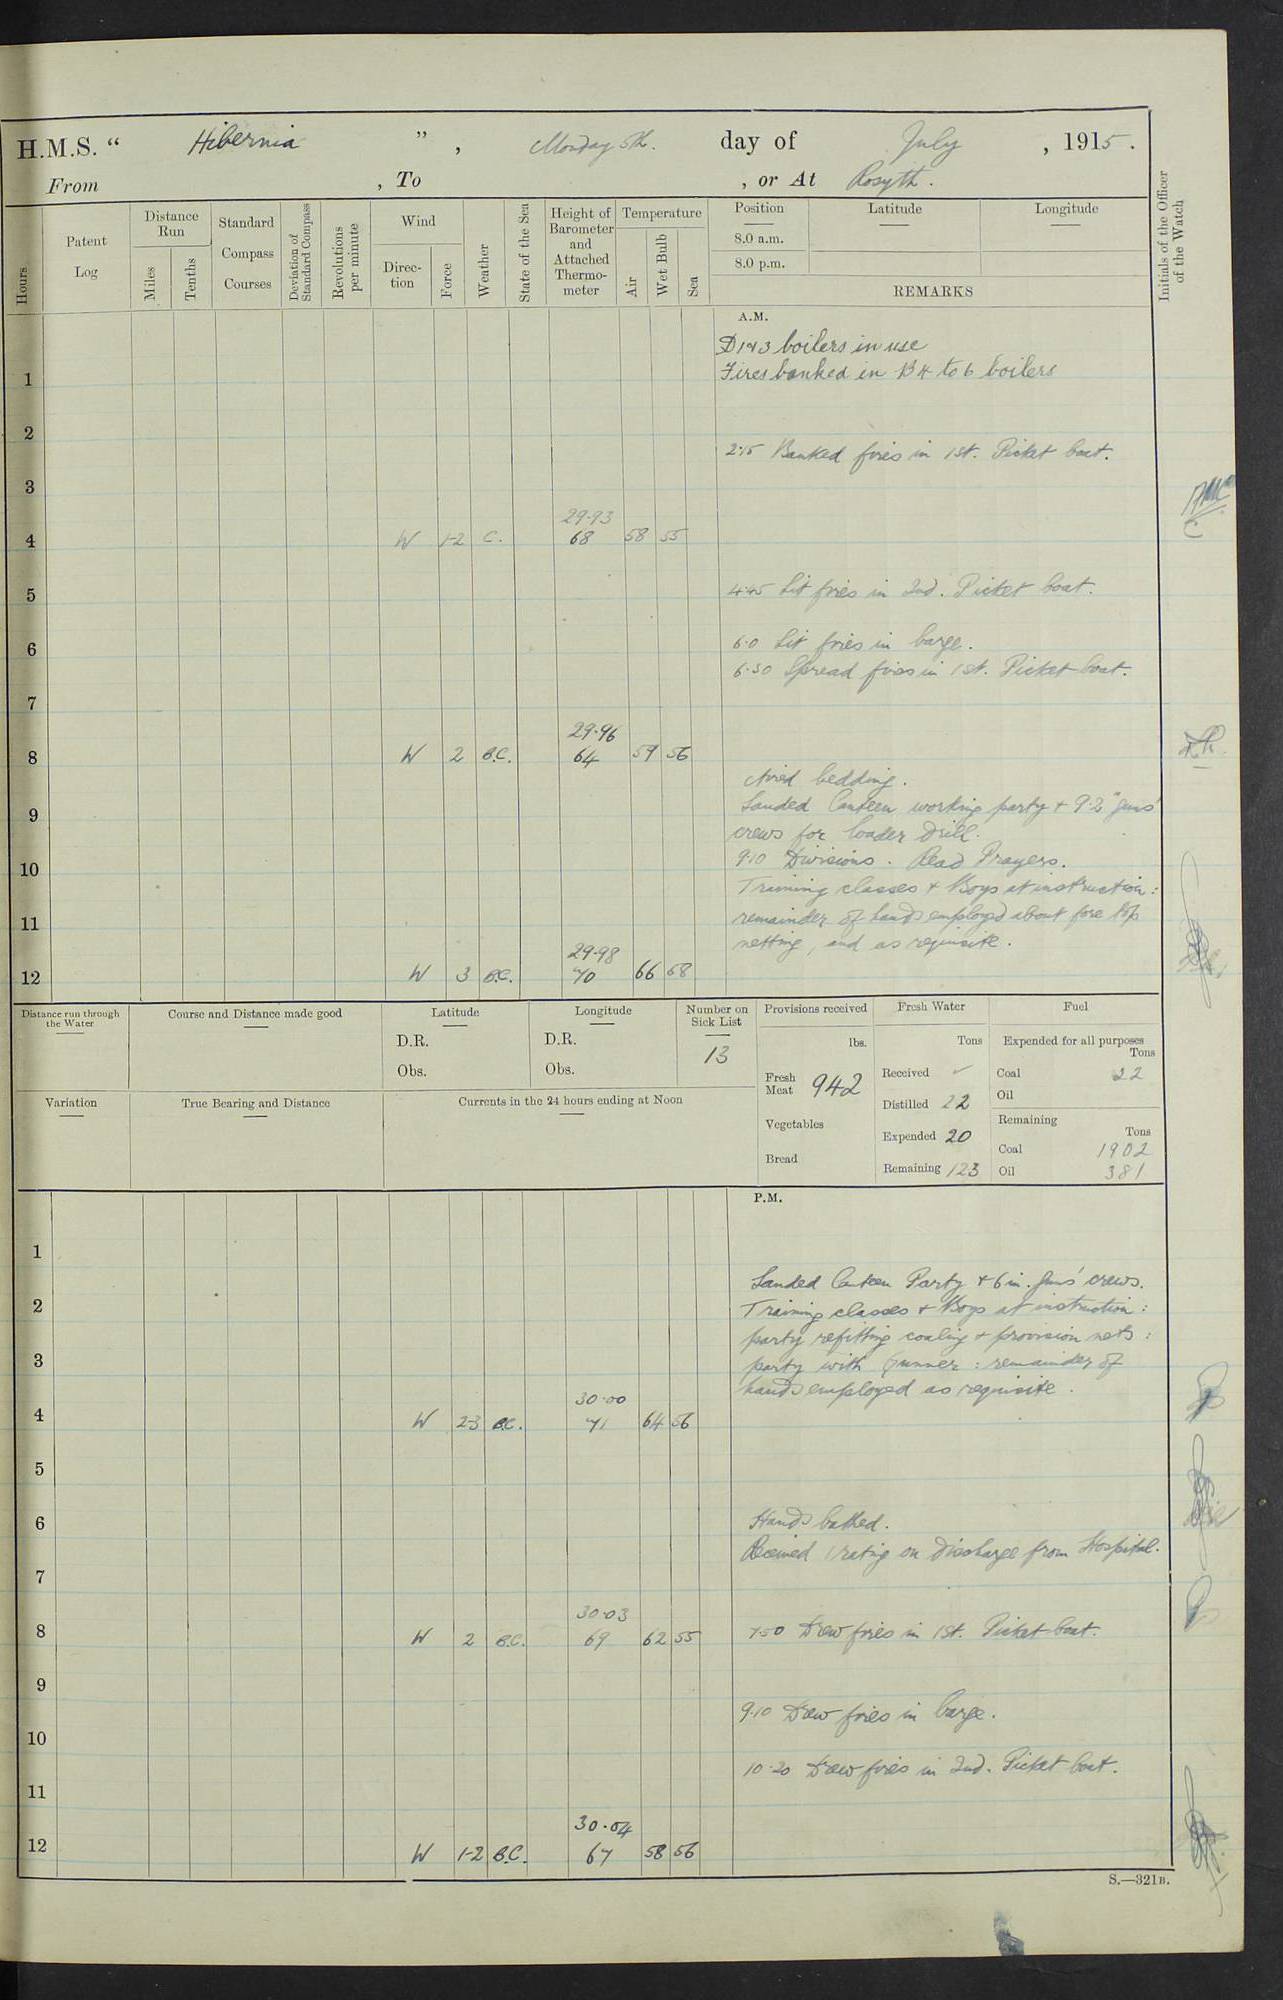 H.M.S. “ Hibernia ” , Monday 5th. day of July , 1915 .
From , To , or At Rosyth .
Hours
Patent Log
Distance Run
Miles
Tenths
Standard Compass Courses
Deviation of Standard Compass
Revolutions per minute
Wind
Direc- tion
Force
Weather
State of the Sea
Height of Barometer and Attached Thermo- meter
Temperature
Air
Wet Bulb
Sea
Position
8.0 a.m.
8.0 p.m.
Latitude
Longitude
REMARKS
Initials of the Officer of the Watch
A.M.
D 1 & 3 boilers in use
1 Fires banked in B 4 to 6 boilers
2
2.15 Banked fires in 1st. Picket boat.
3
29.93
4 W 1-2 C. 68 58 55
5 4.45 Lit fires in 2nd. Picket boat.
6 6.0 Lit fires in barge.
6.30 Spread fires in 1st. Picket boat.
7
29.96
8 W 2 B.C. 64 59 56
Aired bedding.
9 Landed Canteen working party + 9.2" guns'
crews for loader drill.
10 9.10 Divisions. Read Prayers.
Training classes + Boys at instruction:
11 remainder of hands employed about fore top
netting, and as requisite.
29.98
12 W 3 B.C. 70 66 58
Distance run through the Water
Course and Distance made good
Latitude
D.R.
Obs.
Longitude
D.R.
Obs.
Number on Sick List
13
Provisions received
lbs.
Fresh Meat 942
Vegetables
Bread
Fresh Water
Tons
Received ✓
Distilled 22
Expended 20
Remaining 123
Fuel
Expended for all purposes
Tons
Coal 22
Oil
Remaining
Tons
Coal 1902
Oil 381
Variation
True Bearing and Distance
Currents in the 24 hours ending at Noon
P.M.
1
Landed Canteen Party + 6 in. guns' crews.
2 Training classes + Boys at instruction:
party refitting coaling + provision nets:
3 party with Gunner: remainder of
hands employed as requisite.
30.00
4 W 2-3 B.C. 71 64 56
5
6 Hands bathed.
Received 1 rating on discharge from Hospital.
7
30.03
8 W 2 B.C. 69 62 55 7.50 Drew fires in 1st. Picket boat.
9
9.10 Drew fires in barge.
10
10.20 Drew fires in 2nd. Picket boat.
11
30.04
12 W 1-2 B.C. 67 58 56
S.—321B.